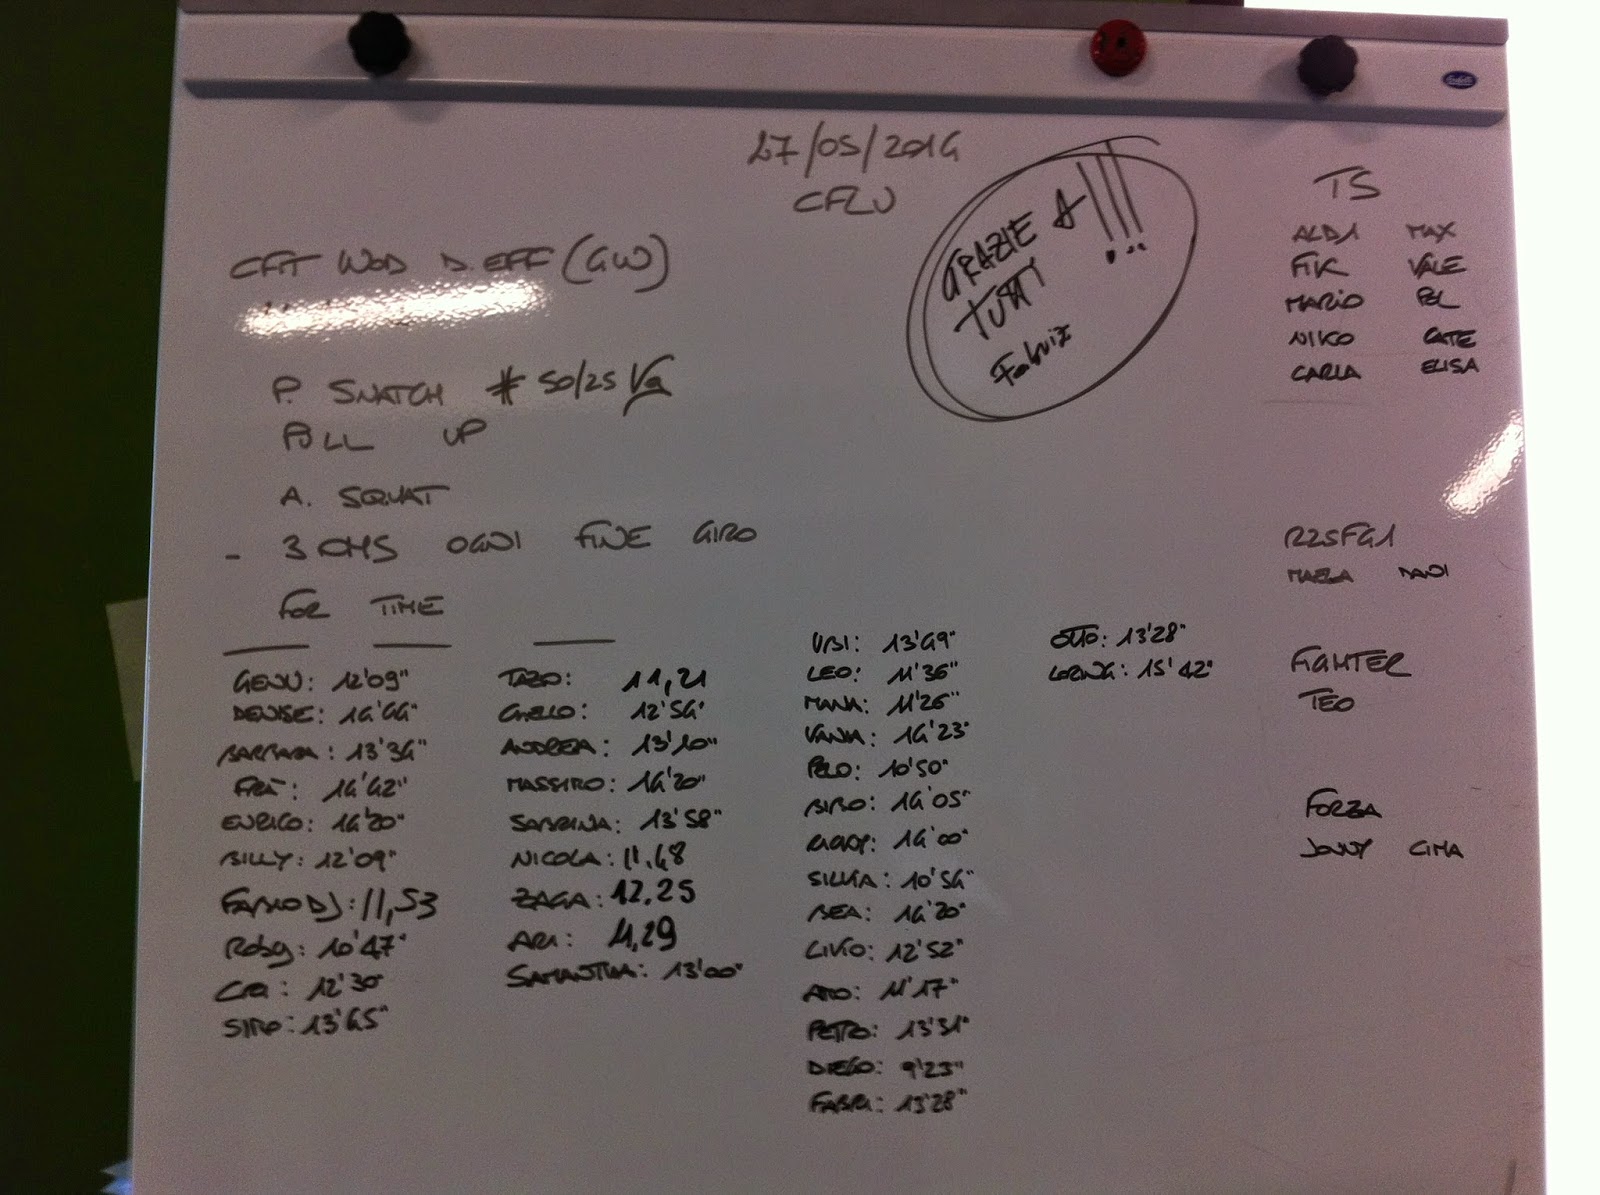 27/05/2014
CFLU
GRAZIE A
TUTTI
!!!...
Fabriz
CFIT WOD D.EFF (GW)
P. SNATCH # 50/25 Kg
PULL UP
A. SQUAT
- 3 CMS OGNI FINE GIRO
FOR TIME
GENU: 12'09"
DENISE: 14'44"
BARBARA: 13'34"
FRA: 14'42"
ENRICO: 14'20"
BILLY: 12'09"
FABIO DJ: 11,53
Roby: 10'47"
CRI: 12'30
SIRO: 13'45"
TAZO: 11,21
12'54"
ANDREA: 13'10"
MASSIRO: 14'20"
SABRINA: 13'58"
NICOLA: 11,48
ZAGA: 12,25
ARI: 11,29
SAMANTHA: 13'00"
UBI: 13'49"
LEO: 11'36"
MANA: 11'26"
VANIA: 14'23"
PELO: 10'50"
BIBO: 14'05"
14'00"
SILVIA: 10'54"
BEA: 14'20"
LIVIO: 12'52"
11'17"
PETRO: 13'31"
DIEGO: 9'23"
FABRI: 13'28"
OTTO: 13'28"
15'42"
TS
ALDI MAX
FIK VALE
MARIO POL
NIKO CATE
CARLA ELISA
R25FG1
FIGHTER
TEO
FORZA
JONNY CIMA